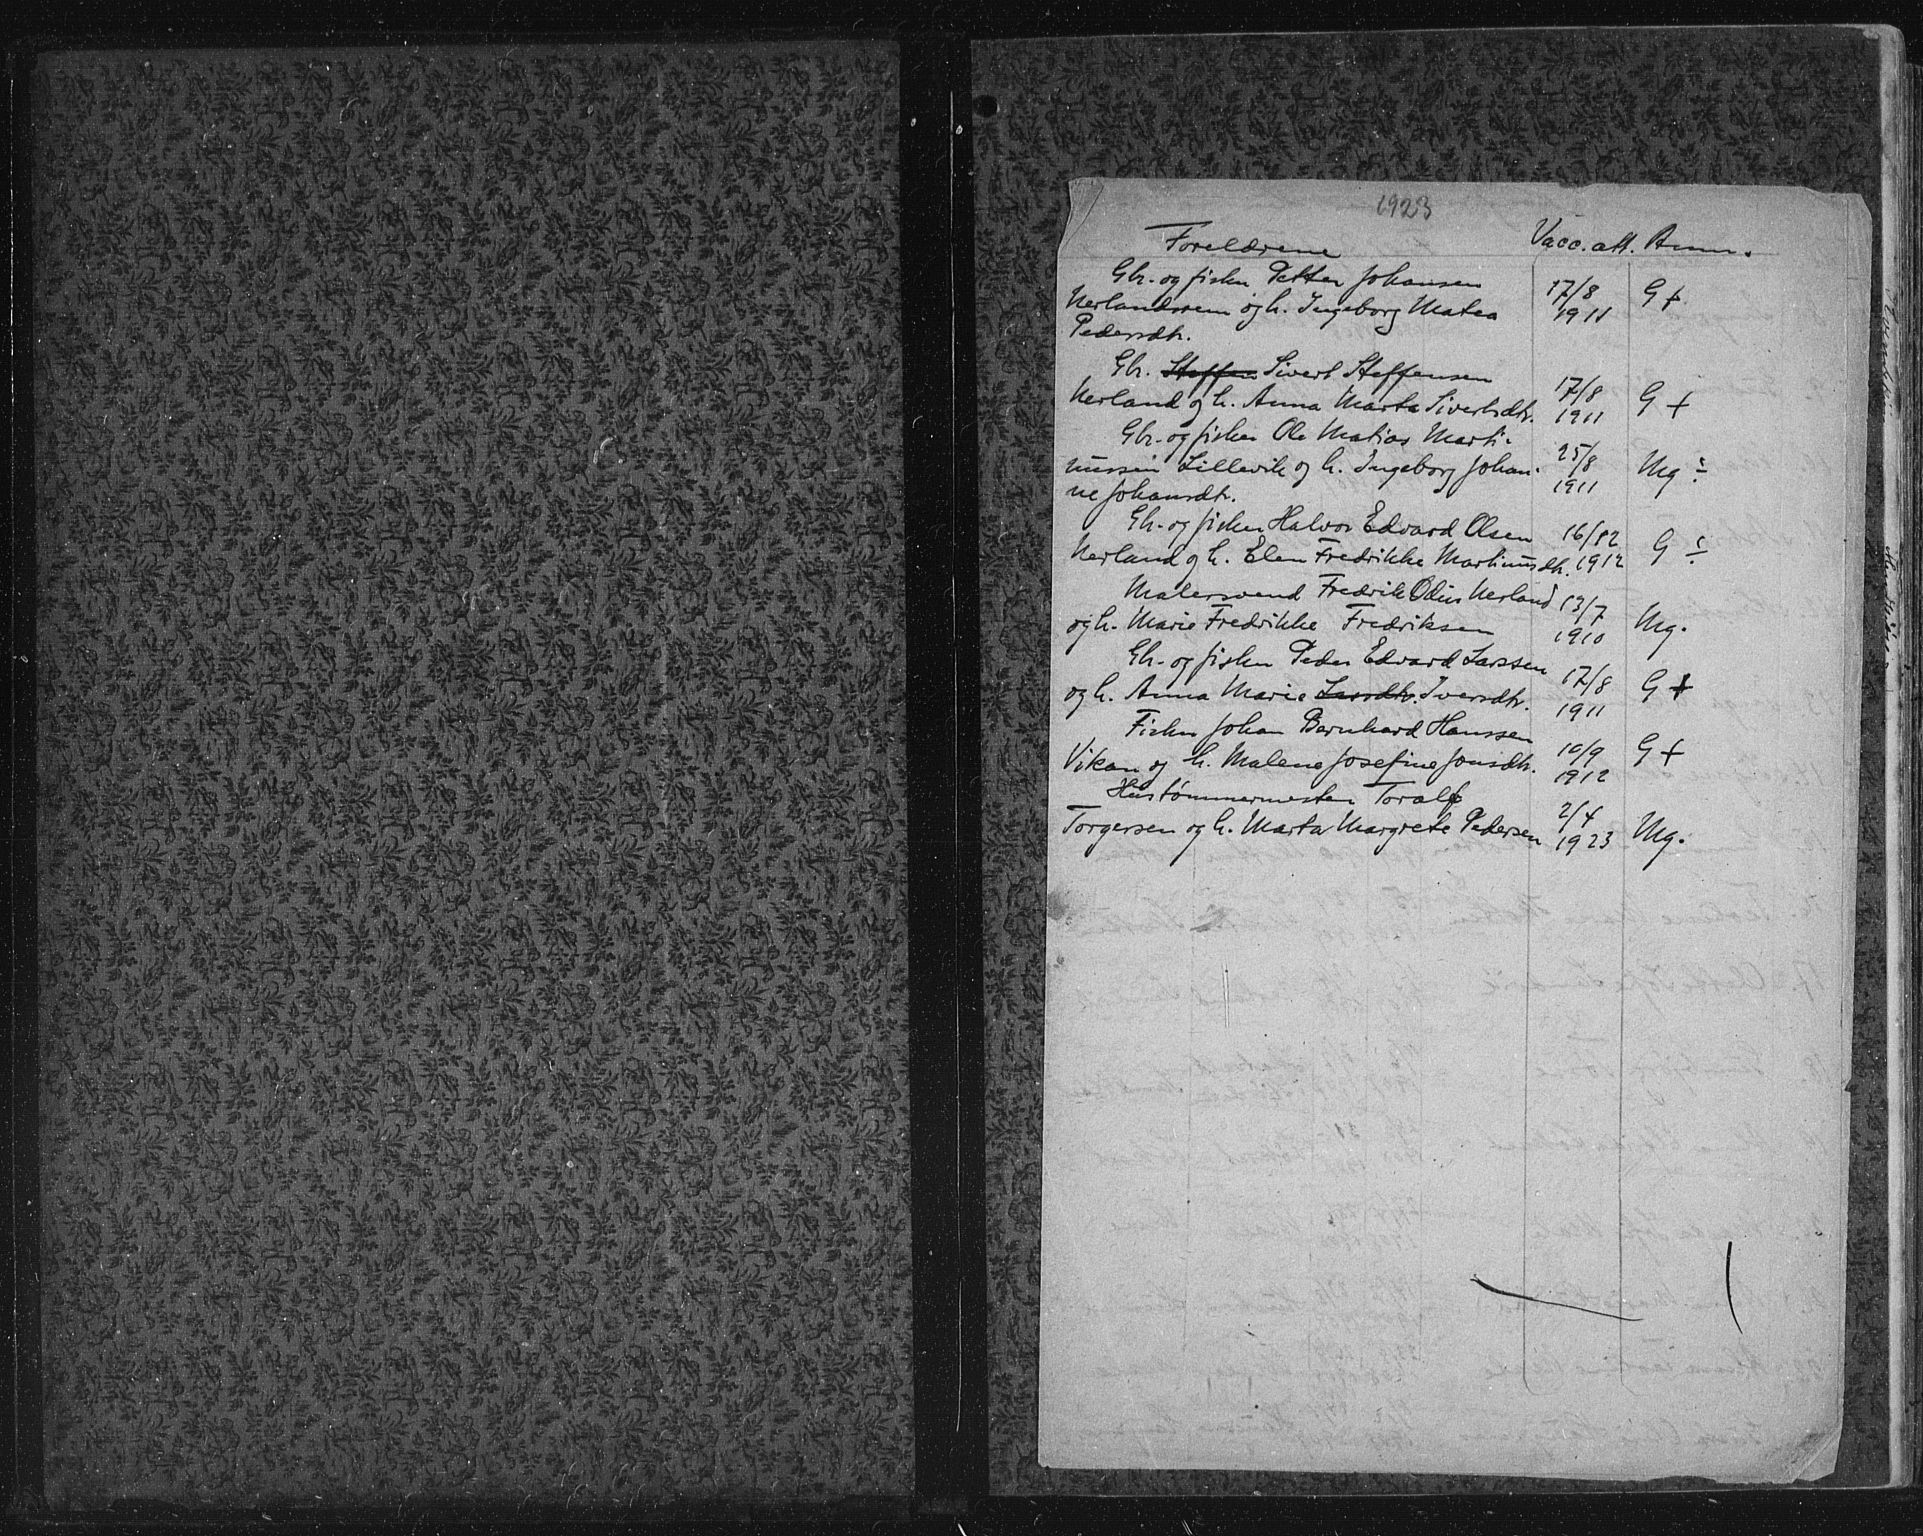 1923
Foreldrene Vacc. att. Anm.
Gbr. og fisker Petter Johansen
Nerlandsrem og h. Ingeborg Matea 17/8 1911 G +
Pedersdtr.
Gbr. Steffen Sivert Steffensen
Nerland og h. Anna Marta Sivertsdtr. 17/8 1911 G +
Gbr. og fisker Ole Matias Marti-
nussen Lillevik og h. Ingeborg Johan- 25/8 1911 Mg
ne Johansdtr.
Gbr. og fisker Halvor Edvard Olsen 16/12
Nerland og h. Elen Fredrikke Martinusdtr. 1912 G
Malersvend Fredrik Odin Nerland 13/7
og h. Marie Fredrikke Fredriksen 1910 Mg.
Gbr. og fisker Peder Edvard Larssen
og h. Anna Marie Larsdtr. Iversdtr. 17/8 1911 G +
Fisker Johan Bernhard Hanssen
Vikan og h. Malene Josefine Jonsdtr. 10/9 1912 G +
Hustømmermester Toralf 2/4
Torgersen og h. Marta Margrete Pedersen 1923 Mg.